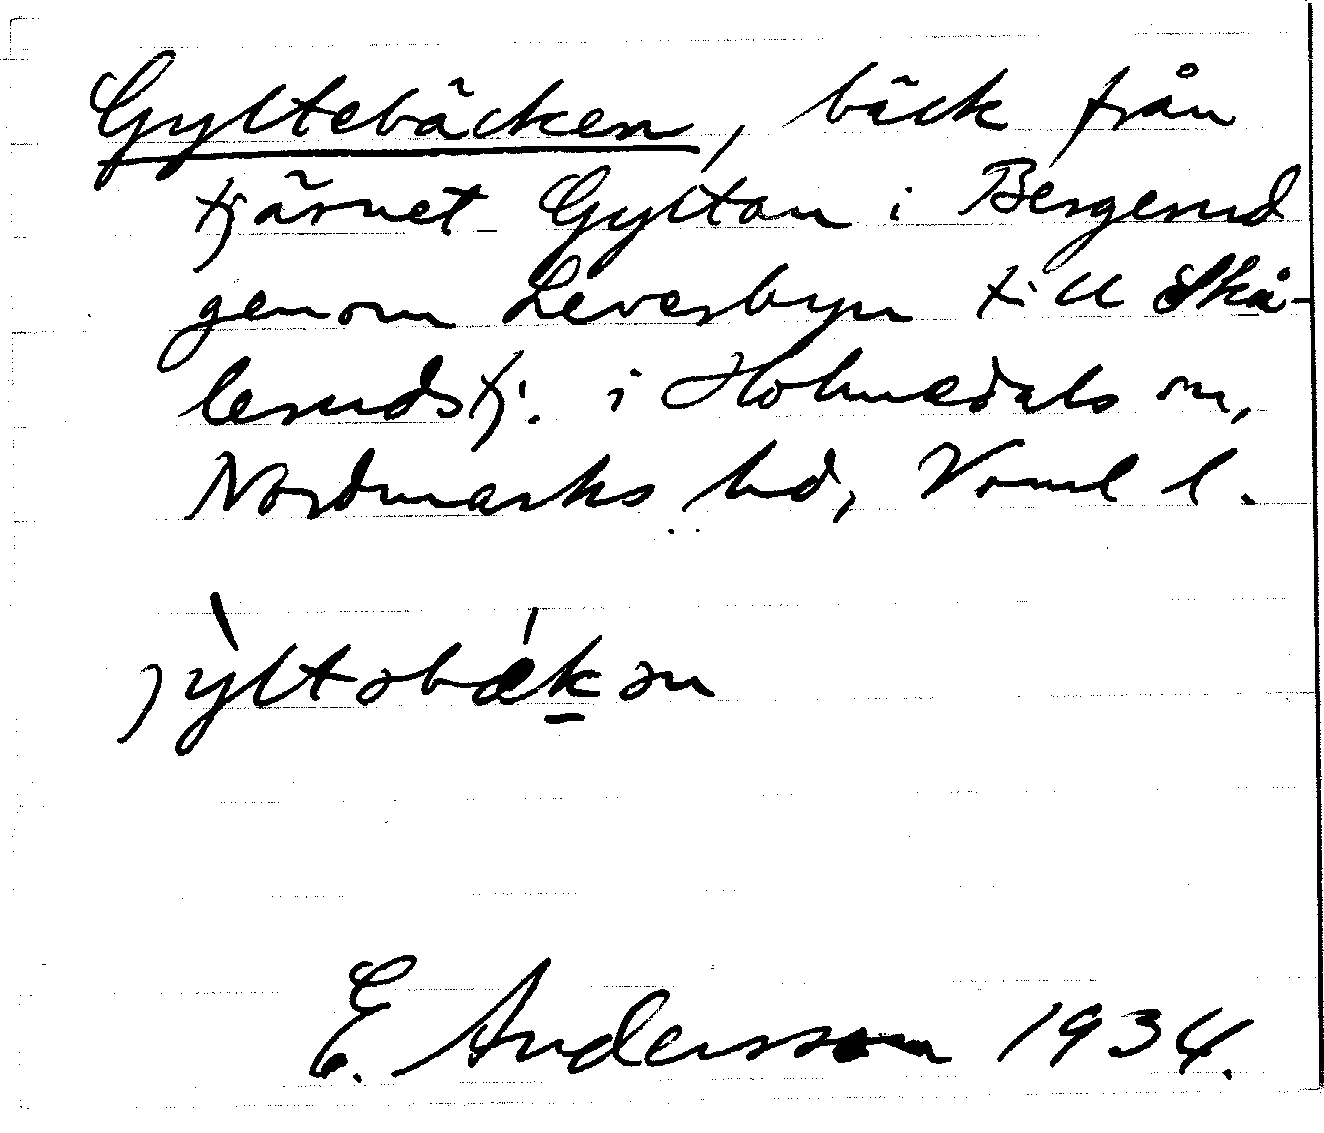 Gyltebäcken, bäck från
tjärnet Gyltan i Bergerud
genom Leverbyn till Skå-
lerudstj. i Holmedals sn,
Nordmarks hd, Vrml l.
jỳltəbǽk̠ən
E. Andersson 1934.